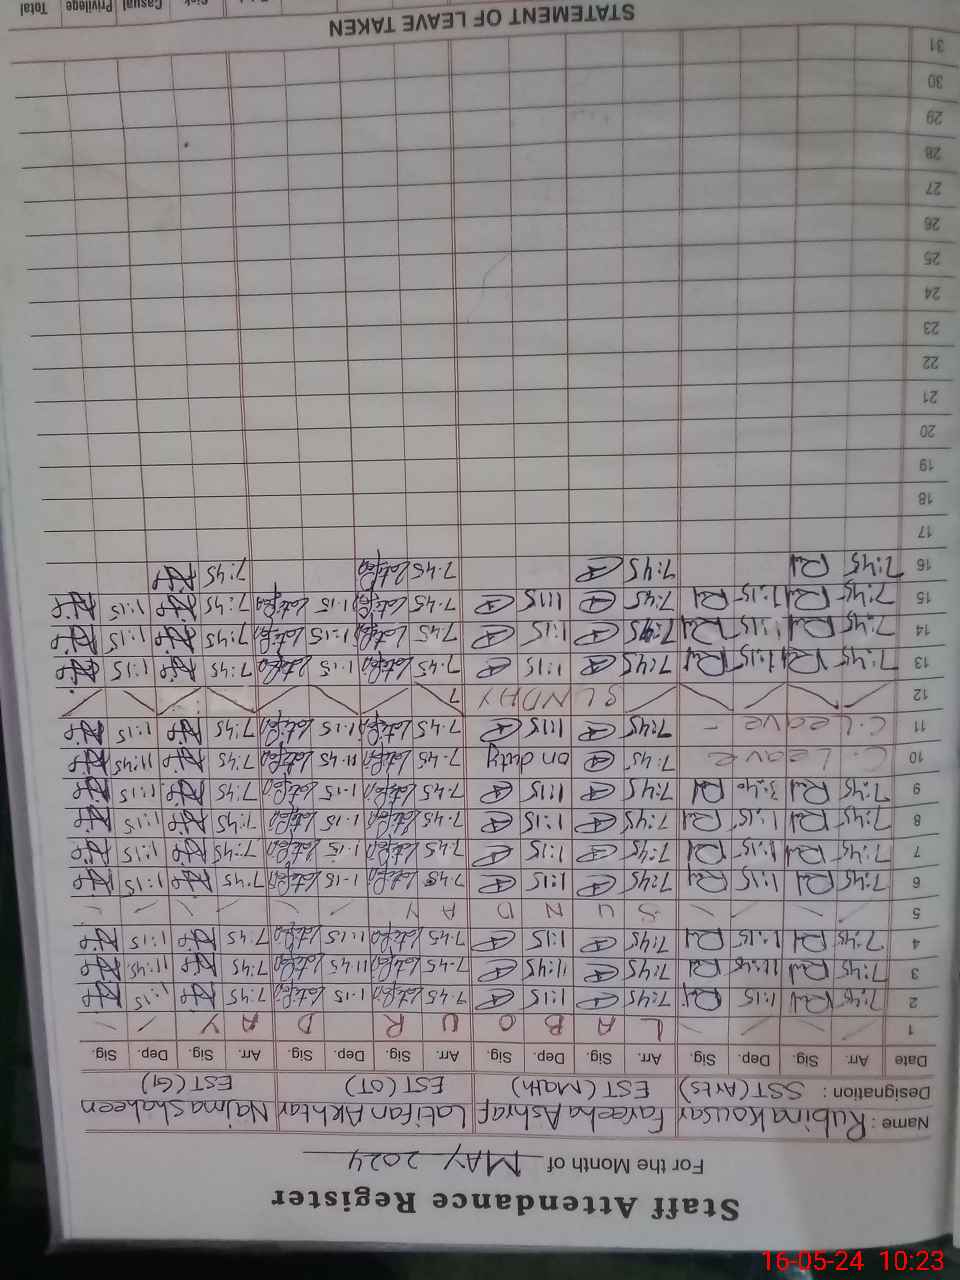 Staff Attendance Register
For the Month of MAY 2024
Name : Rubina Kousar Fareeha Ashraf Latifan Akhtar Najma Shaheen
Designation : SST (Arts) EST (Math) EST (OT) EST (G)
Date Arr. Sig. Dep. Sig. Arr. Sig. Dep. Sig. Arr. Sig. Dep. Sig. Arr. Sig. Dep. Sig.
1 L A B O U R D A Y
2 7:45 1:15 7:45 1:15 7.45 Latifan 1-15 Latifan 7:45 1:15
3 7:45 11:45 7:45 11:45 7.45 Latifan 11.45 Latifan 7:45 11:45
4 7:45 1:15 7:45 1:15 7.45 Latifan 1:15 Latifan 7:45 1:15
5 S U N D A Y
6 7:45 1:15 7:45 1:15 7.45 Latifan 1-15 Latifan 7:45 1:15
7 7:45 1:15 7:45 1:15 7.45 Latifan 1-15 Latifan 7:45 1:15
8 7:45 1:15 7:45 1:15 7.45 Latifan 1-15 Latifan 7:45 1:15
9 7:45 3:40 7:45 1:15 7.45 Latifan 1-15 Latifan 7:45 1:15
10 C. Leave 7:45 on duty 7.45 Latifan 11.45 Latifan 7:45 11:45
11 C. Leave - 7:45 1:15 7.45 Latifan 1-15 Latifan 7:45 1:15
12 SUNDAY
13 7:45 1:15 7:45 1:15 7.45 Latifan 1-15 Latifan 7:45 1:15
14 7:45 1:15 7:45 1:15 7.45 Latifan 1-15 Latifan 7:45 1:15
15 7:45 1:15 7:45 1:15 7.45 Latifan 1-15 Latifan 7:45 1:15
16 7:45 7:45 7.45 Latifan 7:45
17
18
19
20
21
22
23
24
25
26
27
28
29
30
31
STATEMENT OF LEAVE TAKEN
Sick Casual Privilege Total
16-05-24 10:23